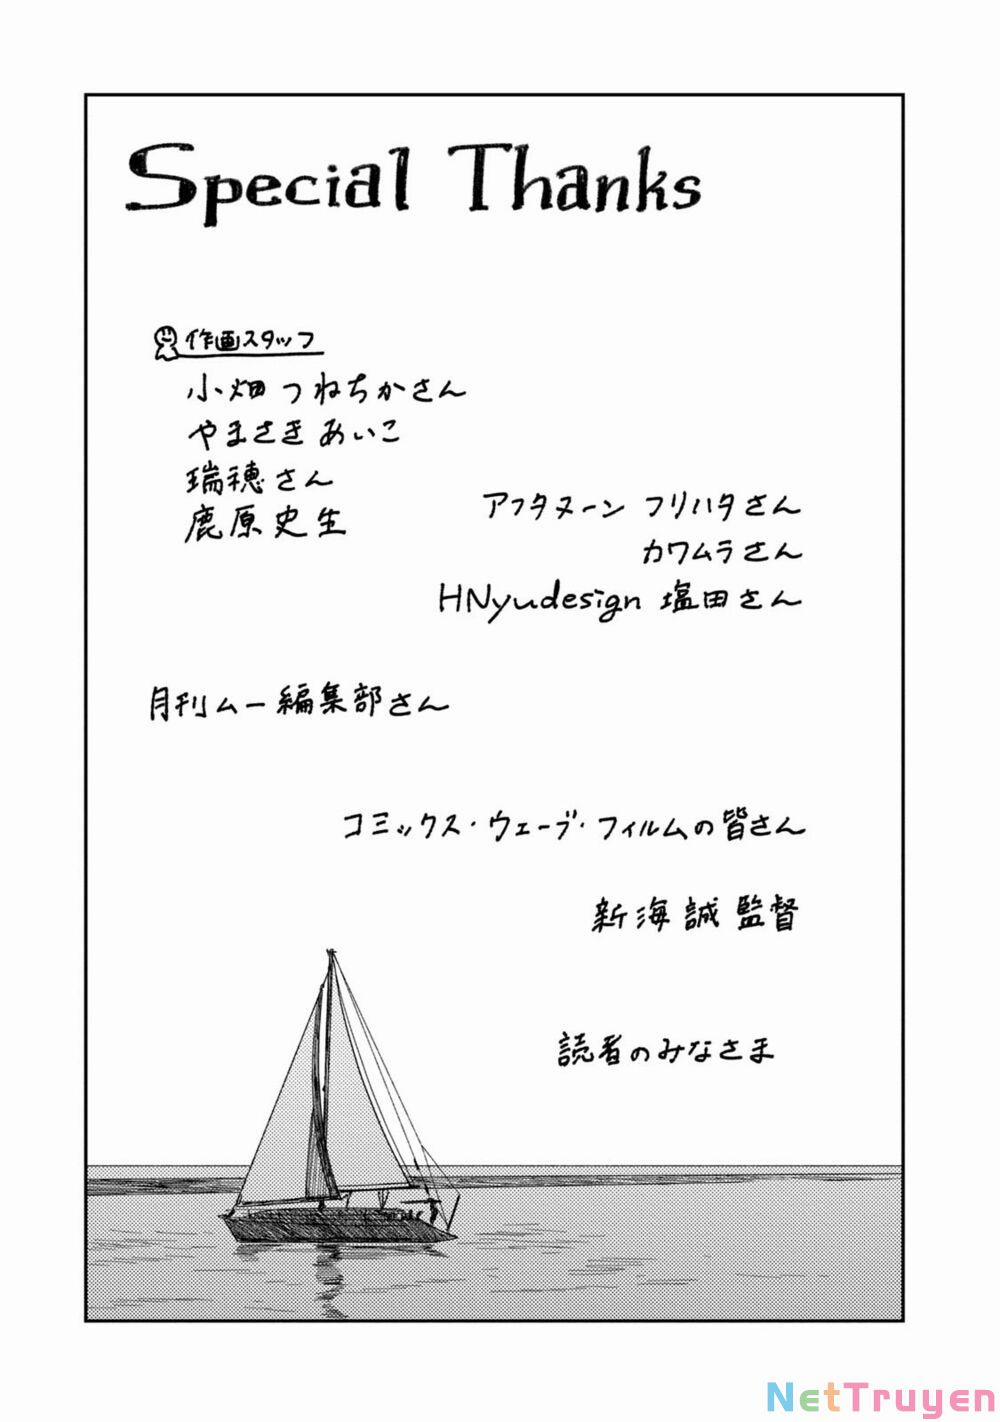 Special Thanks
作画スタッフ
小畑 つねちかさん
やまさき あいこ
瑞穂さん
鹿原史生
アフタヌーン フリハタさん
カワムラさん
HNyudesign 塩田さん
月刊ムー編集部さん
コミックス・ウェーブ・フィルムの皆さん
新海誠監督
読者のみなさま
NetTruyen